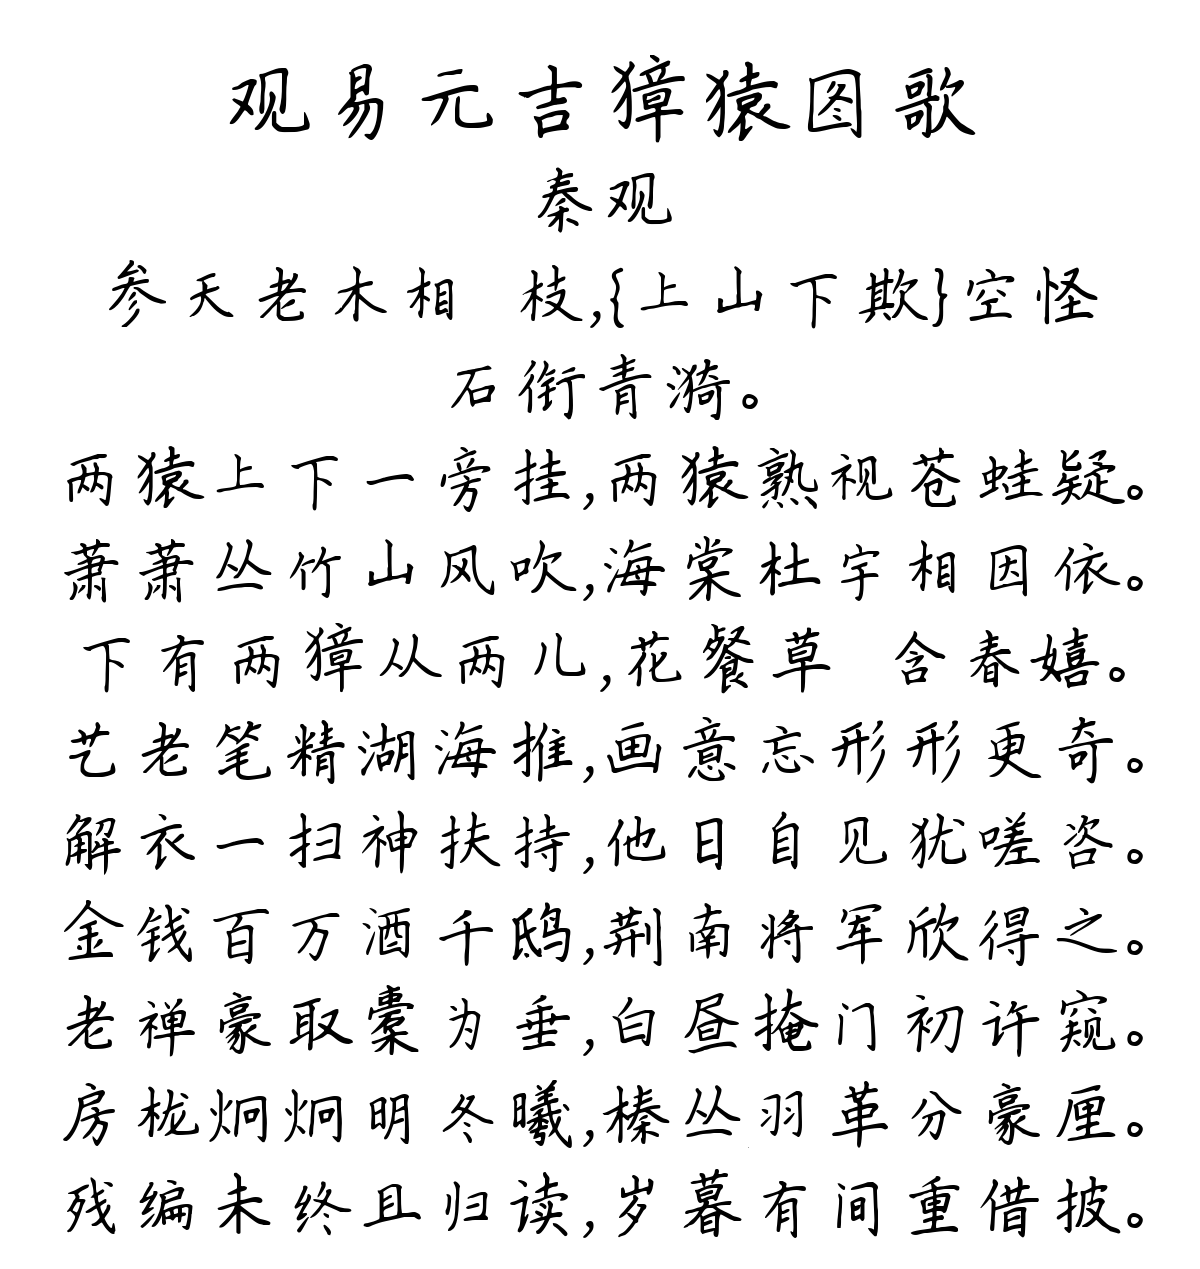 观易元吉獐猿图歌
秦观
参天老木相 枝,{上山下欺}空怪
石衔青漪。
两猿上下一旁挂,两猿熟视苍蛙疑。
萧萧丛竹山风吹,海棠杜宇相因依。
下有两獐从两儿,花餐草 含春嬉。
艺老笔精湖海推,画意忘形形更奇。
解衣一扫神扶持,他日自见犹嗟咨。
金钱百万酒千鸱,荆南将军欣得之。
老禅豪取橐为垂,白昼掩门初许窥。
房栊炯炯明冬曦,榛丛羽革分豪厘。
残编未终且归读,岁暮有间重借披。